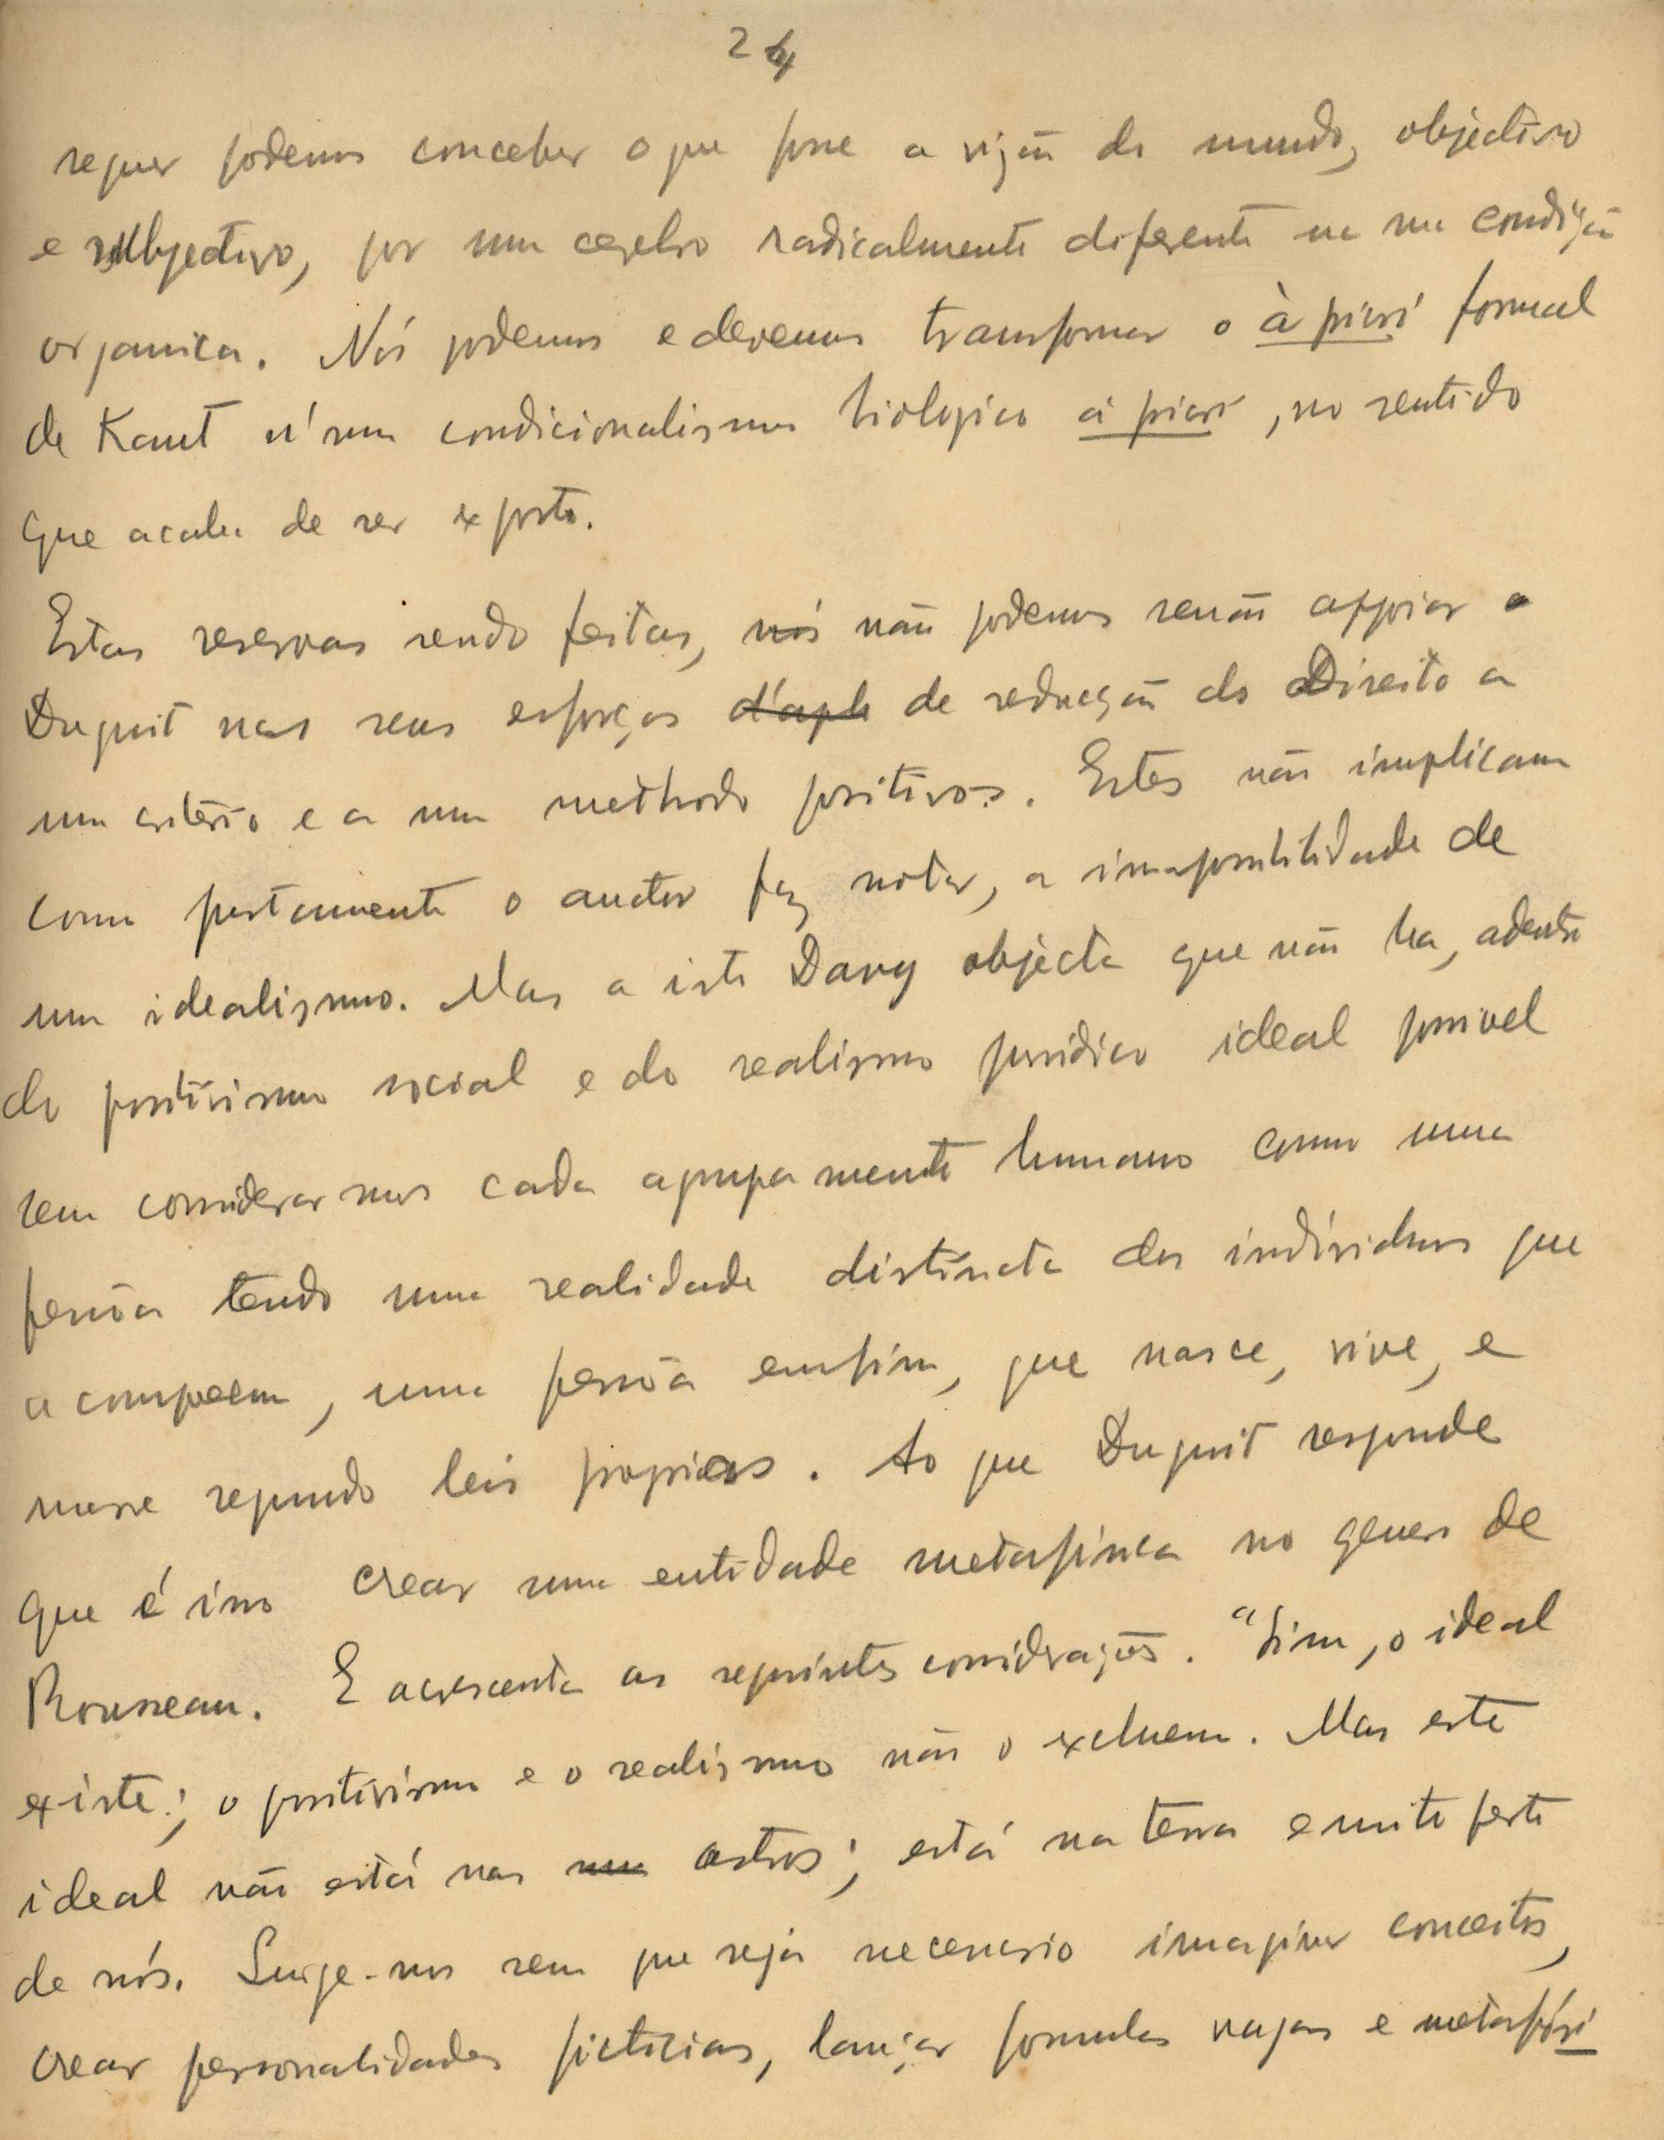 24
sequer podemos conceber o que fosse a visão do mundo, objectivo
e subjectivo, por um cerebro radicalmente diferente na sua condição
organica. Nós podemos e devemos transformar o à priori formal
de Kant n'um condicionalismo biologico à priori, no sentido
que acaba de ser exposto.
Estas reservas sendo feitas, nós não podemos senão appoiar a
Duguit nos seus esforços de reducção do Direito a
um critério e a um methodo positivos. Estes não implicam
como justamente o auctor faz notar, a impossibilidade de
um idealismo. Mas a isto Davy objecta que não ha, adentro
do positivismo social e do realismo juridico ideal possivel
sem considerarmos cada agrupamento humano como uma
pessôa tendo uma realidade distincta dos individuos que
a compõem, uma pessôa emfim, que nasce, vive, e
morre segundo leis proprias. Ao que Duguit responde
que é isso crear uma entidade metafisica no genero de
Rousseau. E acrescenta as seguintes considerações. "Sim, o ideal
existe; o positivismo e o realismo não o excluem. Mas este
ideal não está nos astros; está na terra e muito perto
de nós. Surge-nos sem que seja necessario imaginar conceitos,
crear personalidades ficticias, lançar formulas vagas e metafísi